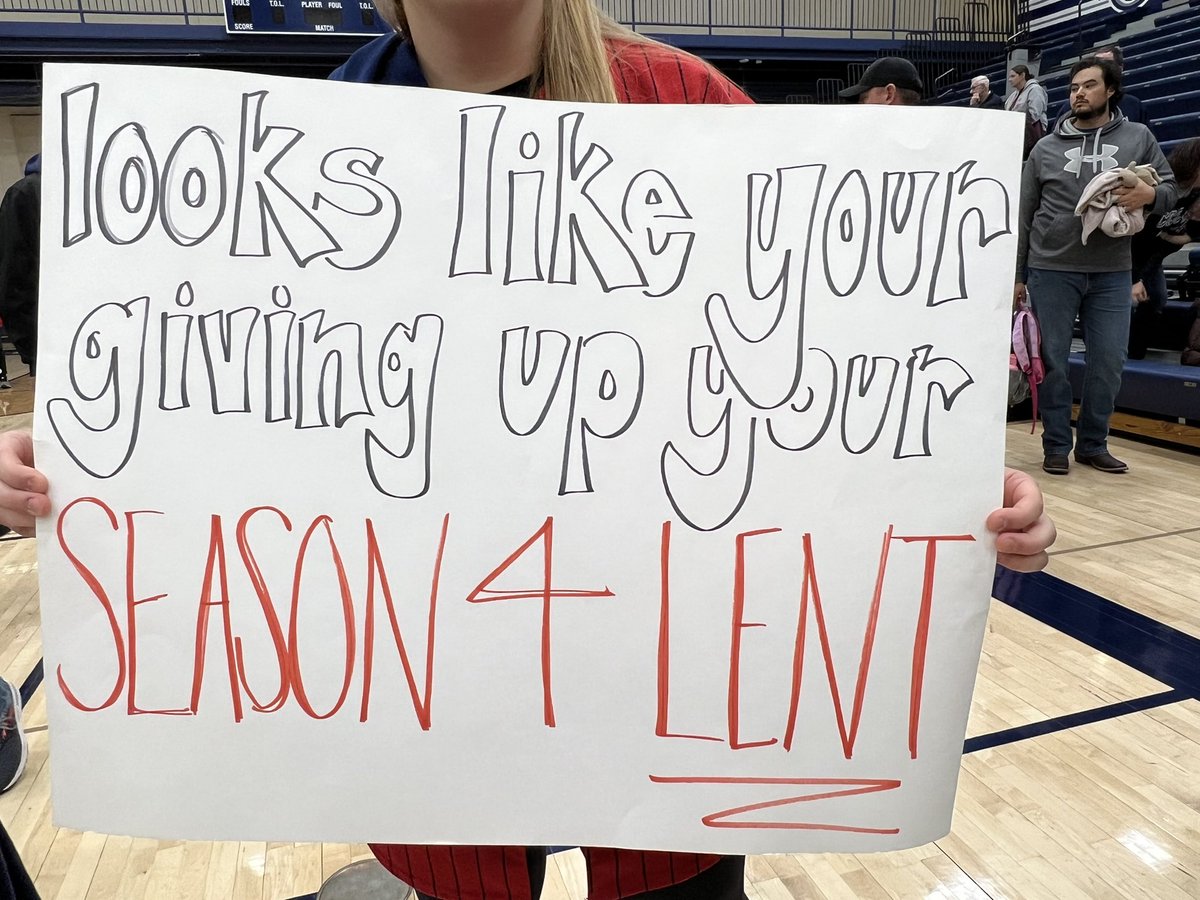 FOULS T.O.L. PLAYER FOUL T.O.L.
SCORE MATCH
looks like your
giving up your
SEASON 4 LENT